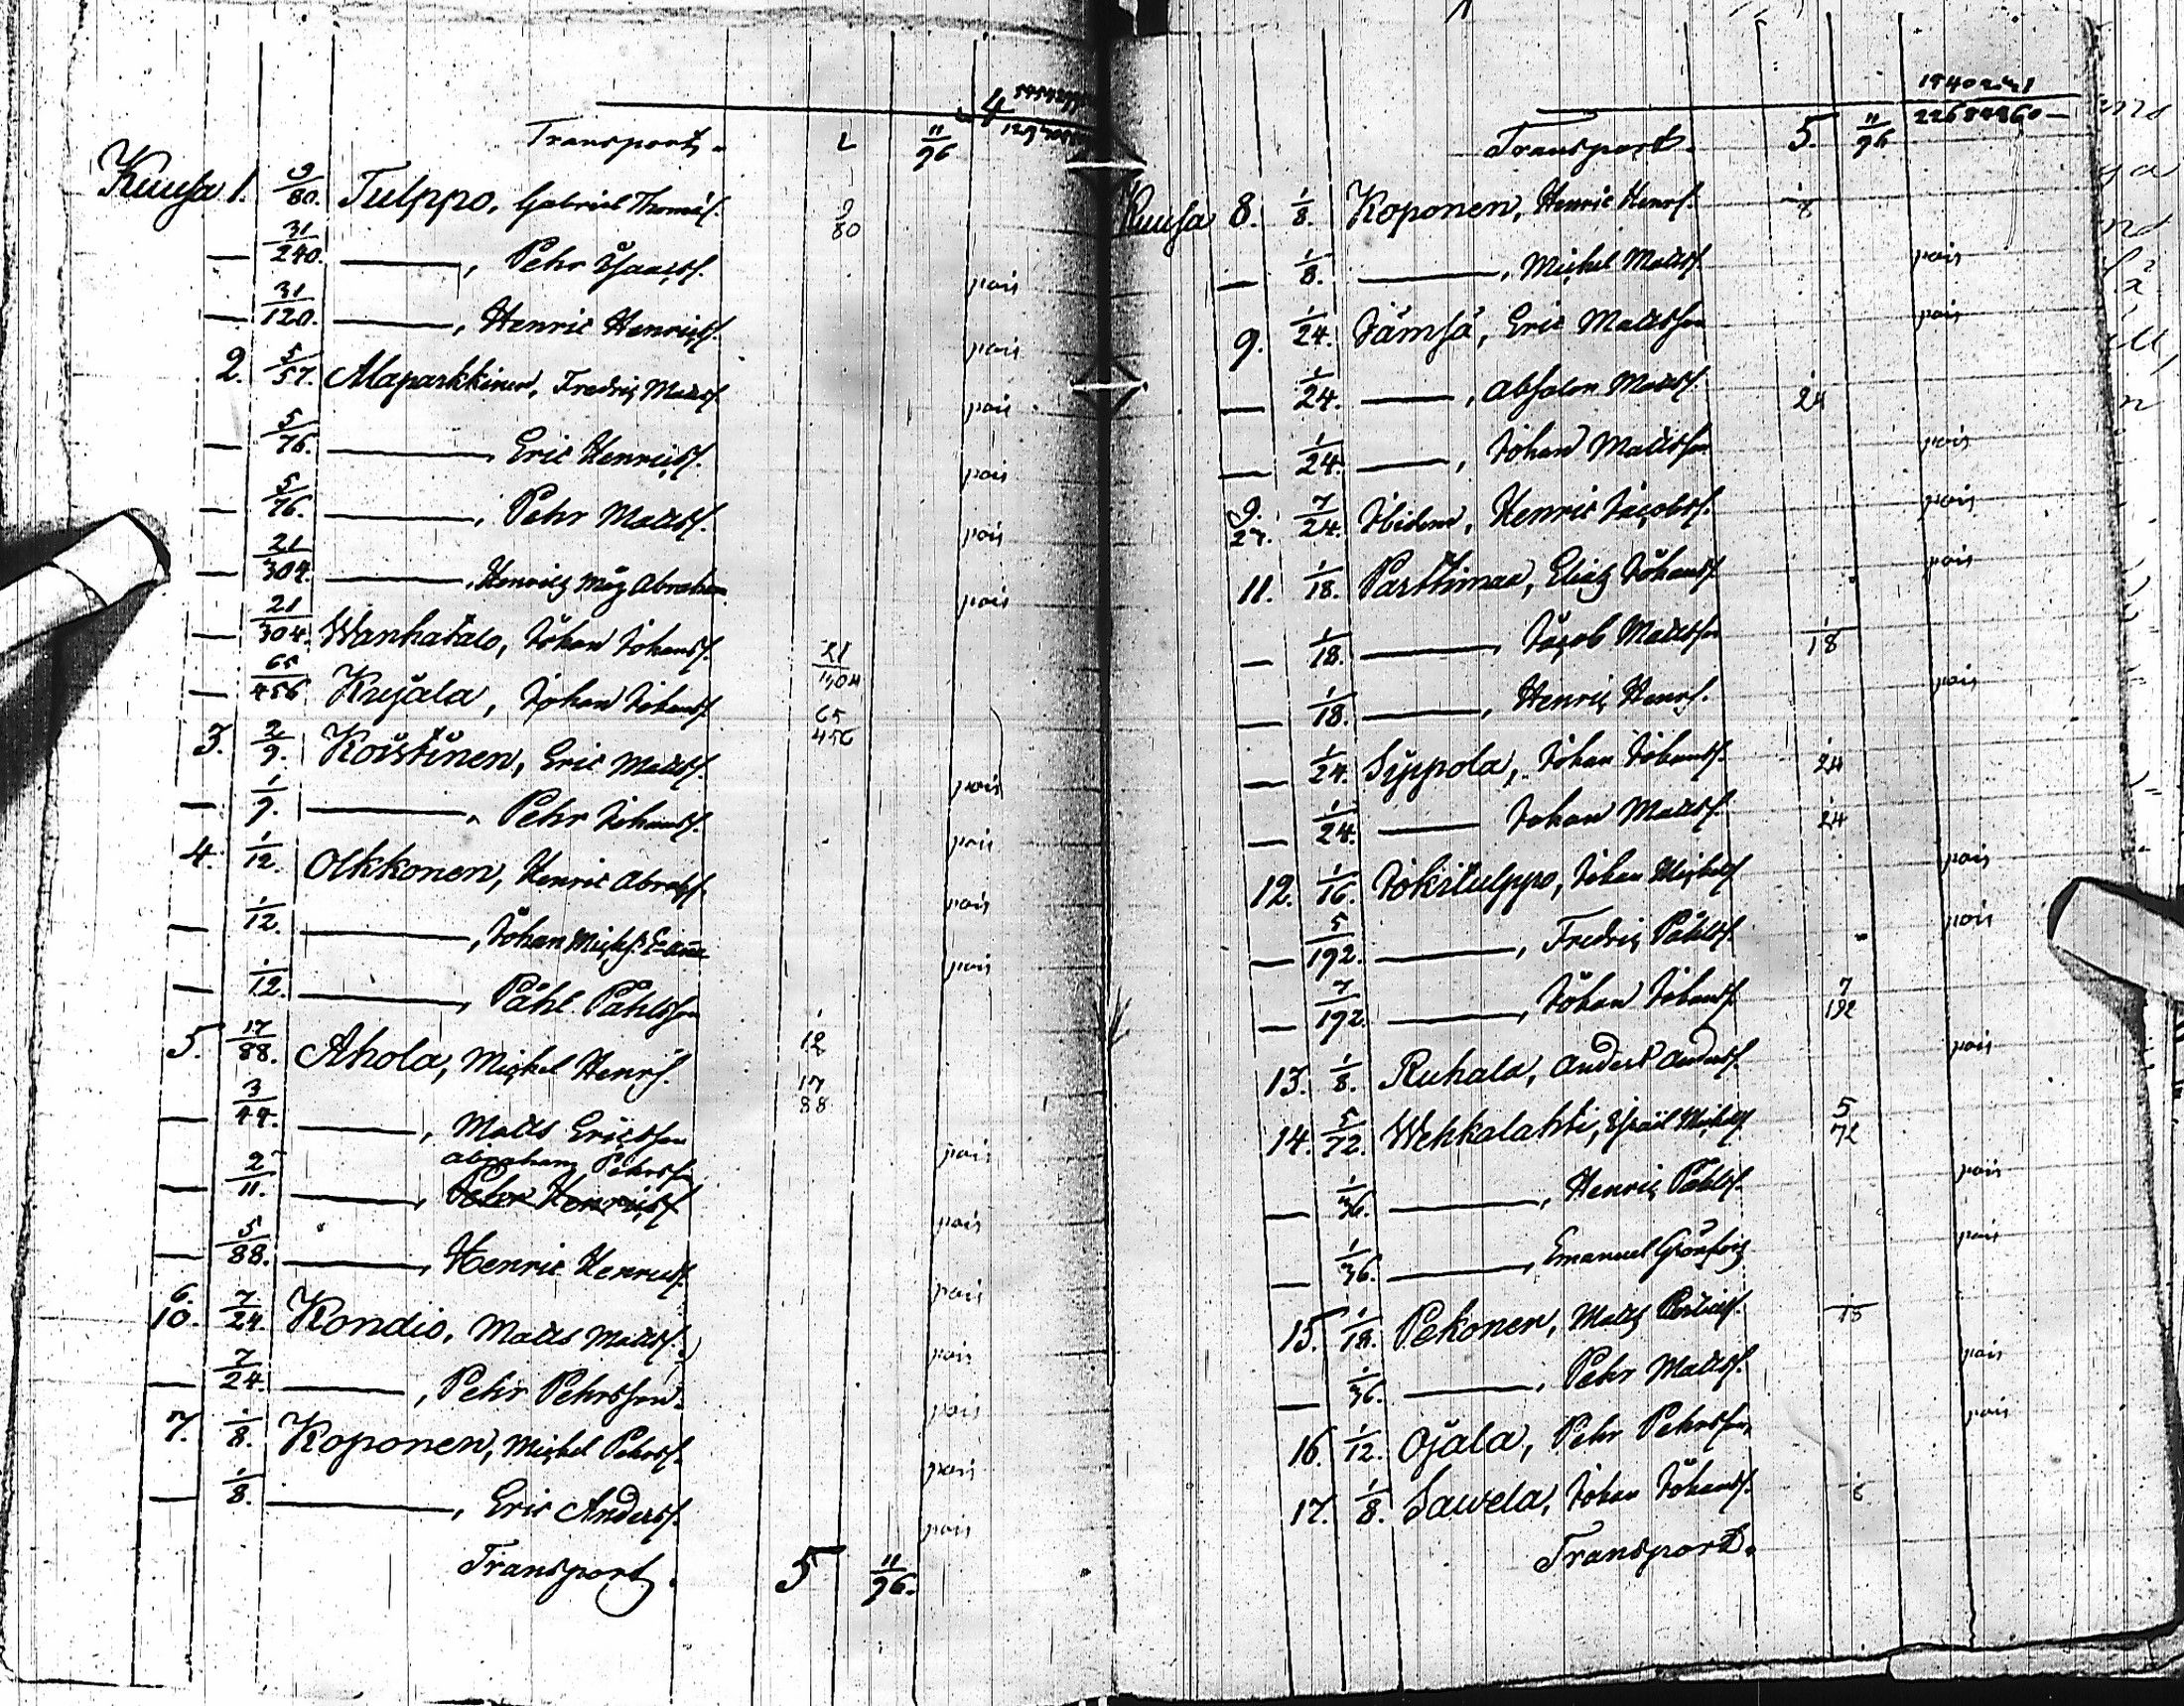 Transport. 11/96
Kuusa 1. 9/80. Tulppo, Gabriel Thomæs. 9/80
— 31/240. ———, Pehr Isaacss. pois
— 31/120. ———, Henric Henricss. pois
2. 5/57. Alaparkkinen, Fredric Matss. pois
— 5/76. ——— Eric Henricss. pois
— 5/76. ———, Pehr Matss. pois
— 21/304. ———, Henrics Måg Abraham pois
— 21/304. Wanhatalo, Johan Johanss. 21/304
— 65/456 Kujala, Johan Johanss. 65/456
3. 2/9. Koistinen, Eric Matss. pois
— 1/9. ———, Pehr Johanss. pois
4. 1/12. Olkkonen, Henric Abrahss. pois
— 1/12. ———, Johan Michss. pois
— 1/12. ———, Påhl Påhlsson 1/12
5. 17/88. Ahola, Michel Henrss. 17/88
— 3/44. ———, Matts Ericsson pois
Abraham Pehrss.
— 2/11. ———, Pehr Henricss. pois
— 5/88. ———, Henric Henricss. pois
6. 10. 7/24. Kondio, Matts Matss. pois
— 7/24. ———, Pehr Pehrsson. pois
7. 1/8. Koponen, Michel Pehrss. pois
— 1/8. ———, Eric Anderss. pois
Transport. 5 11/96.
22684860 —
Transport. 5. 11/96
Kuusa 8. 1/8. Koponen, Henric Henrss. 1/8
— 1/8. ———, Michel Matss. pois
9. 1/24. Jämsä, Eric Mattsson pois
— 1/24. ———, Absalon Matss. 1/24
— 1/24. ———, Johan Mattsson pois
9. 27. 7/24. Ibidem, Henric Jacobss. pois
11. 1/18. Parttimaa, Elias Johanss. pois
— 1/18. ———, Jacob Mattsson 1/18
— 1/18. ———, Henric Henrss. pois
— 1/24. Syppola, Johan Johanss. 1/24
— 1/24. ——— Johan Matss. 1/24
12. 1/16. Jokitulppo, Johan Michelss. pois
— 5/192. ———, Fredric Påhlss. pois
— 7/192. ———, Johan Johanss. 7/192
13. 1/8. Ruhala, Anders Anderss. pois
14. 5/72. Wehkalahti, Israil Michelss. 5/72
— 1/36. ———, Henric Påhlss. pois
— 1/36. ———, Emanuel Grönfors pois
15. 1/18. Pekonen, Matts 1/18
— 1/36. ———, Pehr Matss. pois
16. 1/12. Ojala, Pehr Pehrsson pois
17. 1/8. Sawela, Johan Johanss. 1/8
Transport.